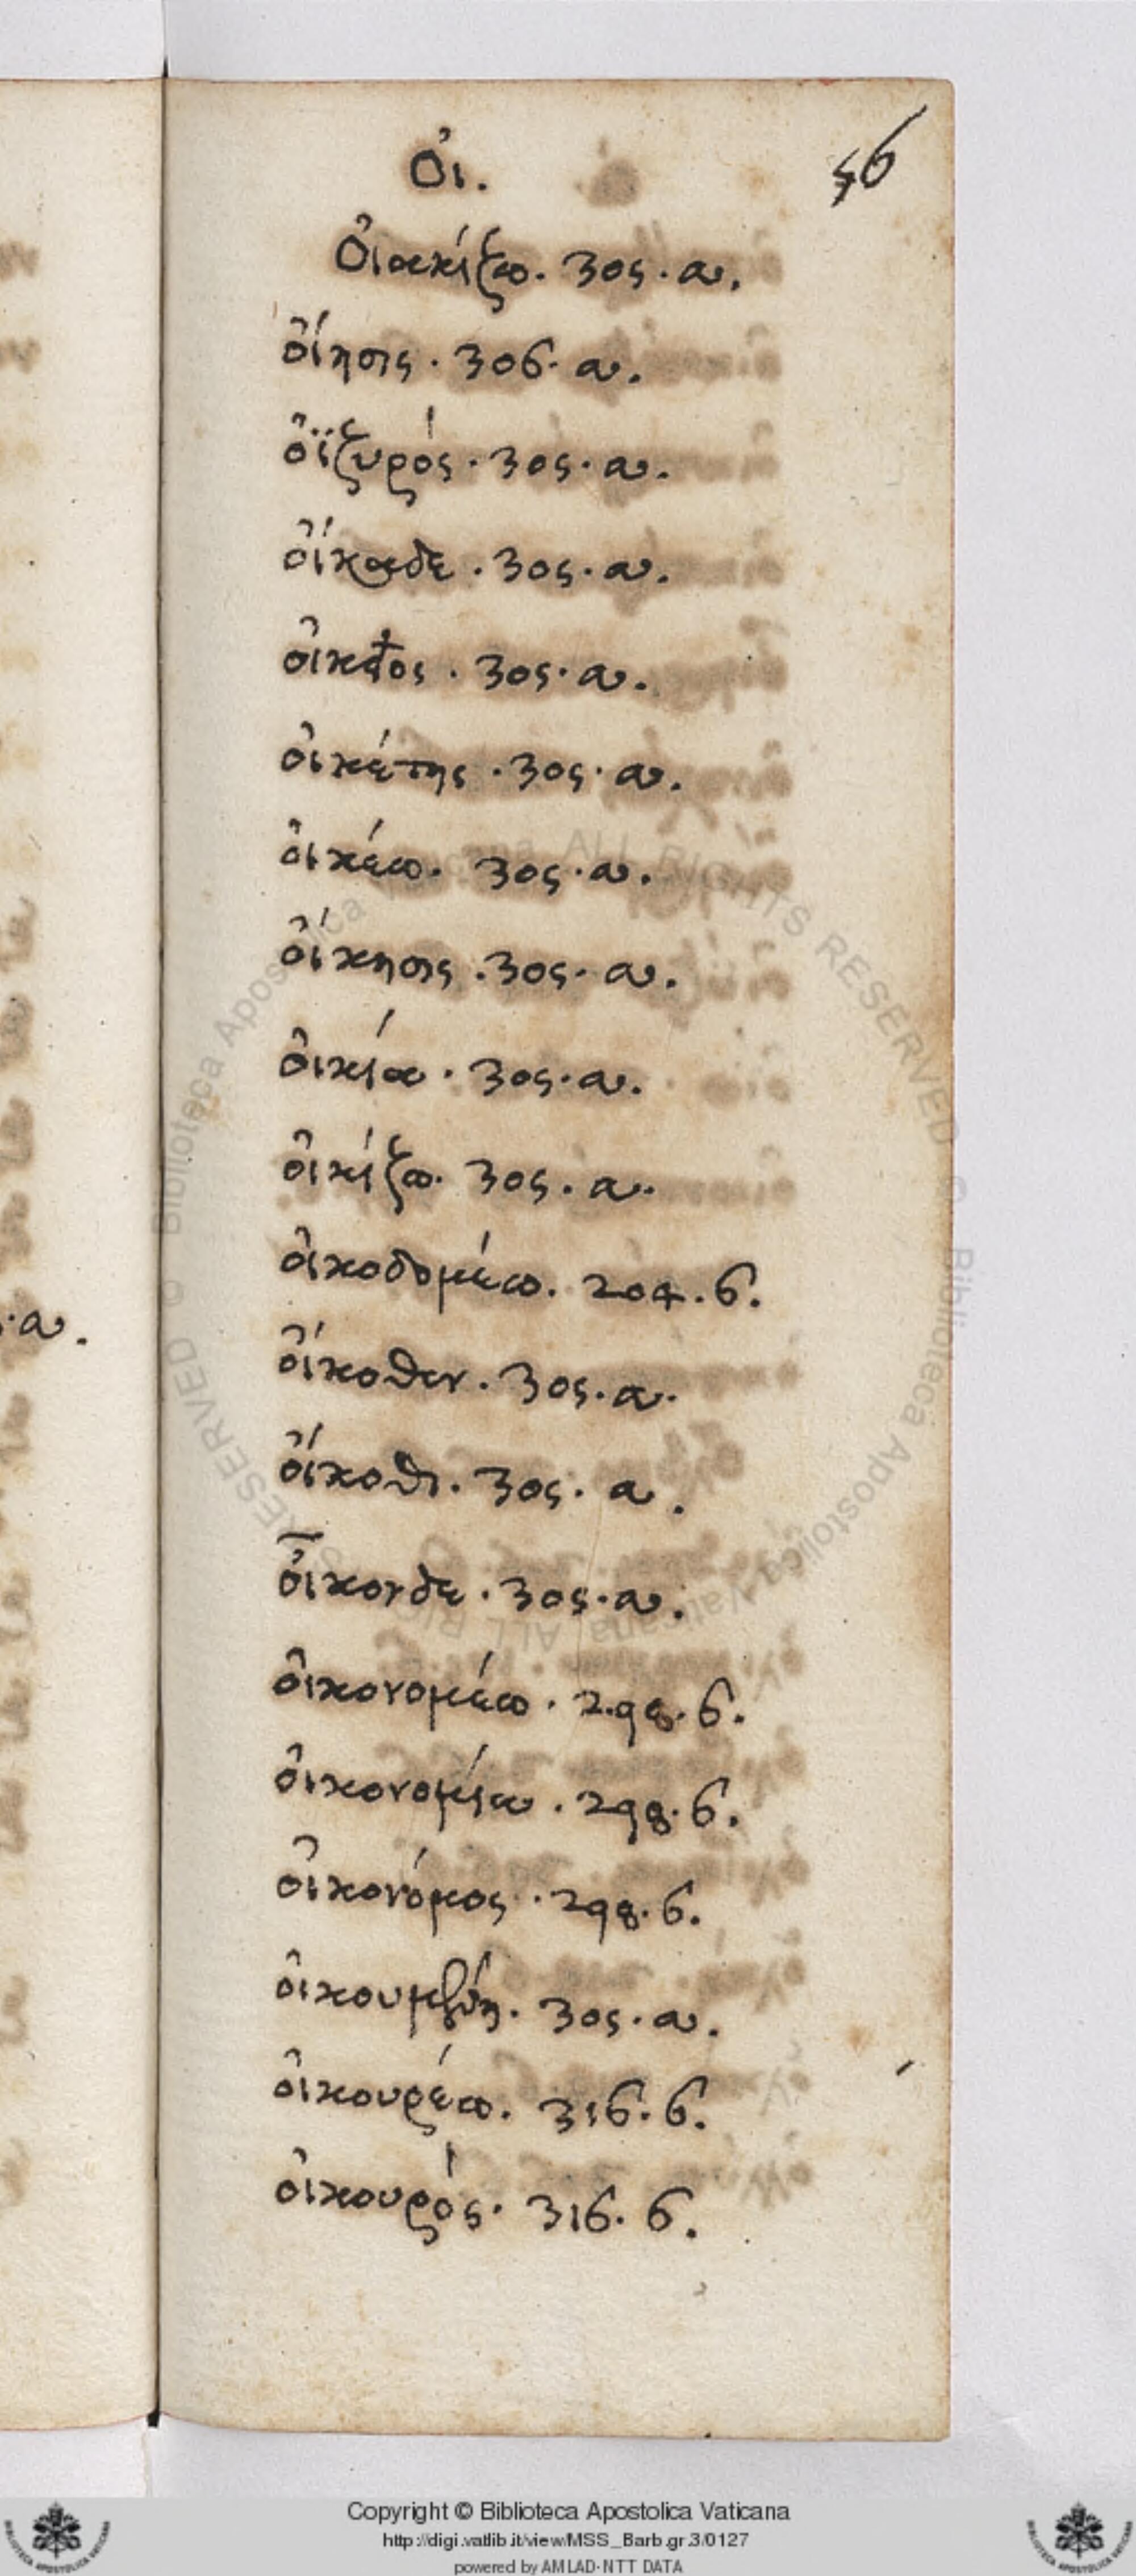 Οἰ.
56
Οἰακίζω. 305. a.
οἴησις. 306. a.
ὀϊζυρός. 305. a.
οἴκαδε. 305. a.
οἰκεῖος. 305. a.
οἰκέτης. 305. a.
οἰκέω. 305. a.
οἴκησις. 305. a.
οἰκία. 305. a.
οἰκίζω. 305. a.
οἰκοδομέω. 204. b.
οἴκοθεν. 305. a.
οἴκοθι. 305. a.
οἶκονδε. 305. a.
οἰκονομέω. 298. b.
οἰκονομία. 298. b.
οἰκονόμος. 298. b.
οἰκουμένη. 305. a.
οἰκουρέω. 316. b.
οἰκουρός. 316. b.
Copyright © Biblioteca Apostolica Vaticana
http://digi.vatlib.it/view/MSS_Barb.gr.3/0127
powered by AMLAD-NTT DATA